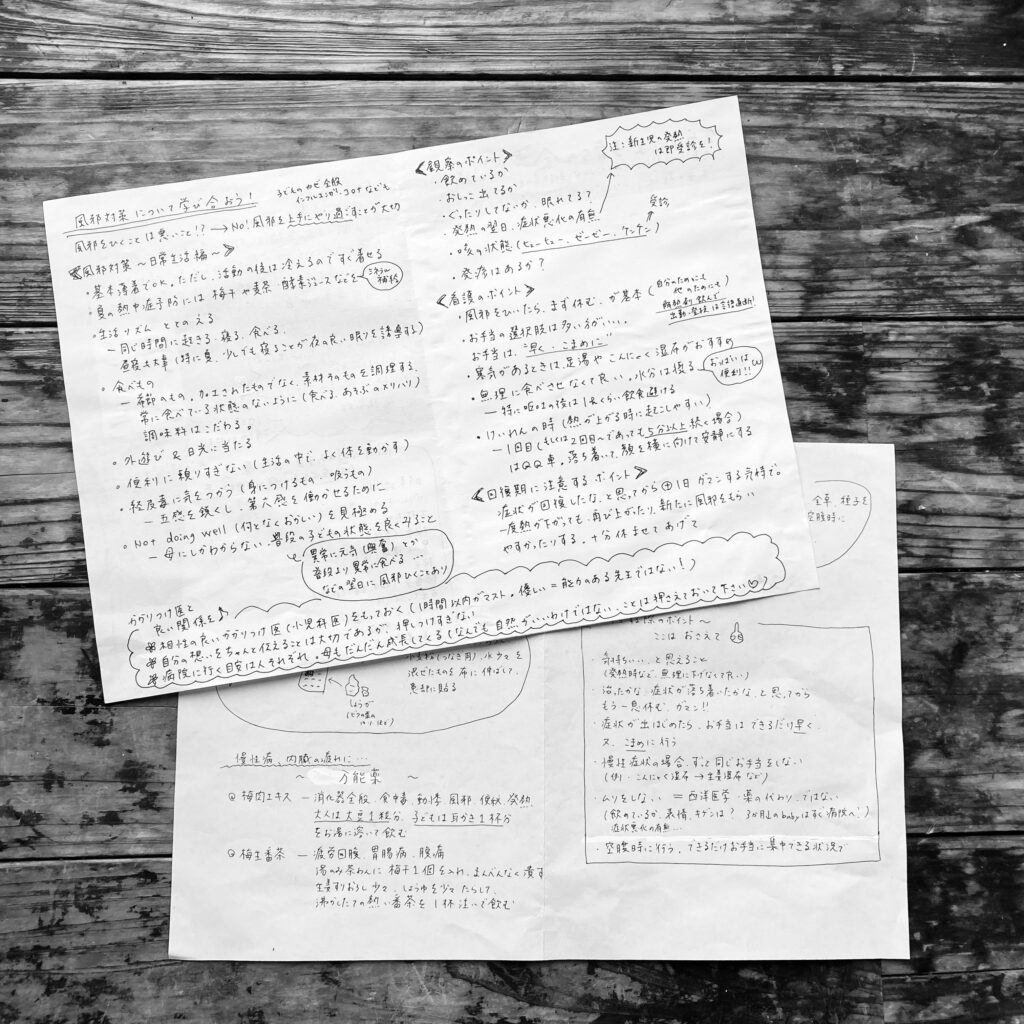 風邪対策について学び合おう!
子どものカゼ全般
インフルエンザ、コロナなども
風邪をひくことは悪いこと!? → No! 風邪を上手にやり過ごすことが大切
《風邪対策〜日常生活編〜》
・基本薄着でOK。ただし、活動の後は冷えるのですぐ着せる
・夏の熱中症予防には梅干や麦茶、酵素ジュースなどを
ミネラル補給
・生活リズム ととのえる
― 同じ時間に起きる、寝る、食べる、
昼寝も大事(特に夏、少しでも寝ることが夜の良い眠りを誘導する)
・食べもの
― 季節のもの。加工されたものでなく、素材そのものを調理する。
常に食べている状態のないように(食べる、あそぶのメリハリ)
調味料はこだわる。
・外遊び & 日光に当たる
・便利に頼りすぎない(生活の中で、よく体を動かす)
・経皮毒に気をつかう(身につけるもの・吸うもの)
― 五感を鋭くし、第六感を働かせるために
・Not doing well(何となくおかしい)を見極める
― 母にしかわからない、普段の子どもの状態を良くみること
異常に元気(興奮)とか
普段より異常に食べる…
などの翌日に風邪ひくことあり
《観察のポイント》
・飲めているか
・おしっこ出てるか
・ぐったりしてないか、眠れてる?
・発熱の翌日、症状悪化の有無
注:新生児の発熱
は即受診を!
・咳の状態(ヒューヒュー、ゼーゼー、ケンケン)
受診
・発疹はあるか?
《看護のポイント》
・風邪をひいたら、まず休む。が基本
(自分のためにも
他のためにも)
解熱剤飲んで
出勤・登校は言語道断!
・お手当の選択肢は多い方がいい。
お手当は、"早く・こまめに"
・寒気があるときは、足湯や こんにゃく湿布がおすすめ
・無理に食べさせなくて良い。水分は摂る
おっぱいは
便利!!
― 特に嘔吐の後は1hくらい飲食避ける
・けいれんの時(熱が上がる時に起こしやすい)
― 1回目(もしくは2回目〜であっても5分以上続く場合)
はQQ車。落ち着いて、顔を横に向けて安静にする
《回復期に注意するポイント》
症状が回復したな、と思ってから⊕1日ガマンする気持で。
一度熱が下がっても、再び上がったり、新たに風邪をもらい
やすかったりする。十分休ませてあげて
かかりつけ医と
良い関係を♪
相性の良いかかりつけ医(小児科医)をもっておく(1時間以内がマスト。優しい=能力のある先生ではない!)
自分の想いをちゃんと伝えることは大切であるが、押しつけすぎない
病院に行く目安は人それぞれ。母もだんだん成長してくる(なんでも自然がいいわけではない、ことは押さえておいて下さい♡)
小麦粉(つなぎ用)、水少々を
混ぜたものを布に伸ばして、
患部に貼る
しょうが
慢性病、内臓の疲れに…
〜 万能薬 〜
梅肉エキス ― 消化器全般、食中毒、動悸、風邪、便秘、発熱
大人は大豆1粒分、子どもは耳かき1杯分
をお湯に溶いて飲む
梅生番茶 ― 疲労回復、胃腸病、腹痛
湯のみ茶わんに梅干1個を入れ、まんべんなく潰す
生姜すりおろし少々、しょうゆを少々たらして、
沸かしたての熱い番茶を1杯注いで飲む
空腹時に
のポイント〜
ここは おさえて
・気持ちいい、と思えること
(発熱時など、無理に下げなくて良い)
・治ったかな、症状が落ち着いたかな、と思ってから
もう一息休む、ガマン!!
・症状が出はじめたら、お手当はできるだけ早く、
又、こまめに行う
・慢性症状の場合、ずっと同じお手当をしない
(例)・こんにゃく湿布→生姜湿布 など)
・ムリをしない =西洋医学・薬の代わり、ではない
(飲めているか、表情、キゲンは? 3か月↓のbabyはすぐ病院へ!)
症状悪化の有無…
・空腹時に行う、できるだけお手当に集中できる状況で